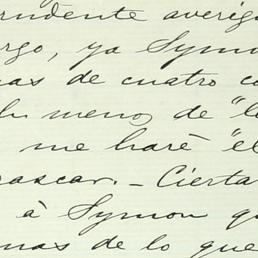 prudente averig
rgo, ya Symon
nas de cuatro co
menos de "l
me haré "e
ascar. — Cierta
á Symon qu
mas de lo que